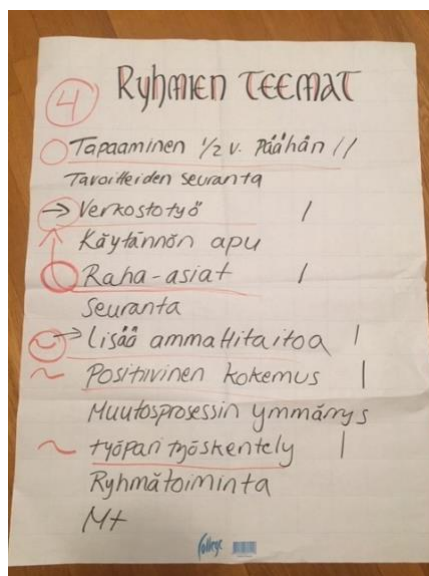 4
RyhmiEN TEEMAT
Tapaaminen 1/2 v. Päähän //
Tavoitteiden seuranta
→ Verkostotyö /
Käytännön apu
Raha-asiat /
Seuranta
→ Lisää ammattitaitoa |
~ Positiivinen kokemus |
Muutosprosessin ymmärrys
~ työpari työskentely |
Ryhmätoiminta
M+
College